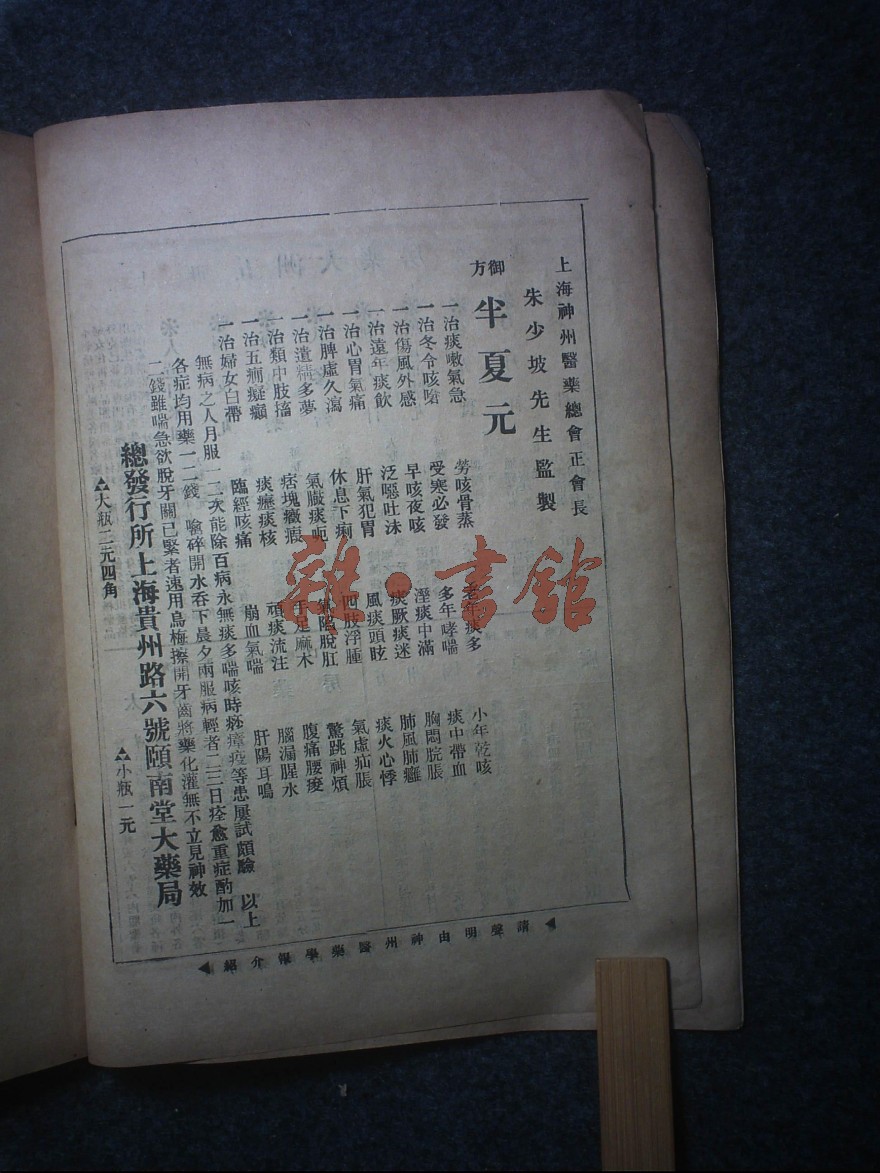 上海神州醫藥總會正會長
朱少坡先生監製
御方
半夏元
一治痰嗽氣急 勞咳骨蒸 老年痰多 小年乾咳
一治冬令咳嗆 受寒必發 多年哮喘 痰中帶血
一治傷風外感 早咳夜咳 溼痰中滿 胸悶脘脹
一治遠年痰飲 泛噁吐沫 痰厥痰迷 肺風肺癰
一治心胃氣痛 肝氣犯胃 風痰頭眩 痰火心悸
一治脾虛久瀉 休息下痢 四肢浮腫 氣虛疝脹
一治遺精多夢 氣臌痰呃 氣陷脫肛 驚跳神煩
一治類中肢搐 痞塊癥瘕 手足麻木 腹痛腰痠
一治五癎癡癲 痰癧痰核 頑痰流注 腦漏腥水
一治婦女白帶 臨經咳痛 崩血氣喘 肝陽耳鳴
無病之人月服一二次能除百病永無痰多喘咳時痧瘴疫等患屢試頗驗 以上
各症均用藥一二錢 喻碎開水吞下晨夕兩服病輕者二三日痊愈重症酌加一
二錢雖喘急欲脫牙關已緊者速用烏梅擦開牙齒將藥化灌無不立見神效
總發行所上海貴州路六號頤南堂大藥局
大瓶二元四角 小瓶一元
請聲明由神州醫藥學報介紹
雜·書館